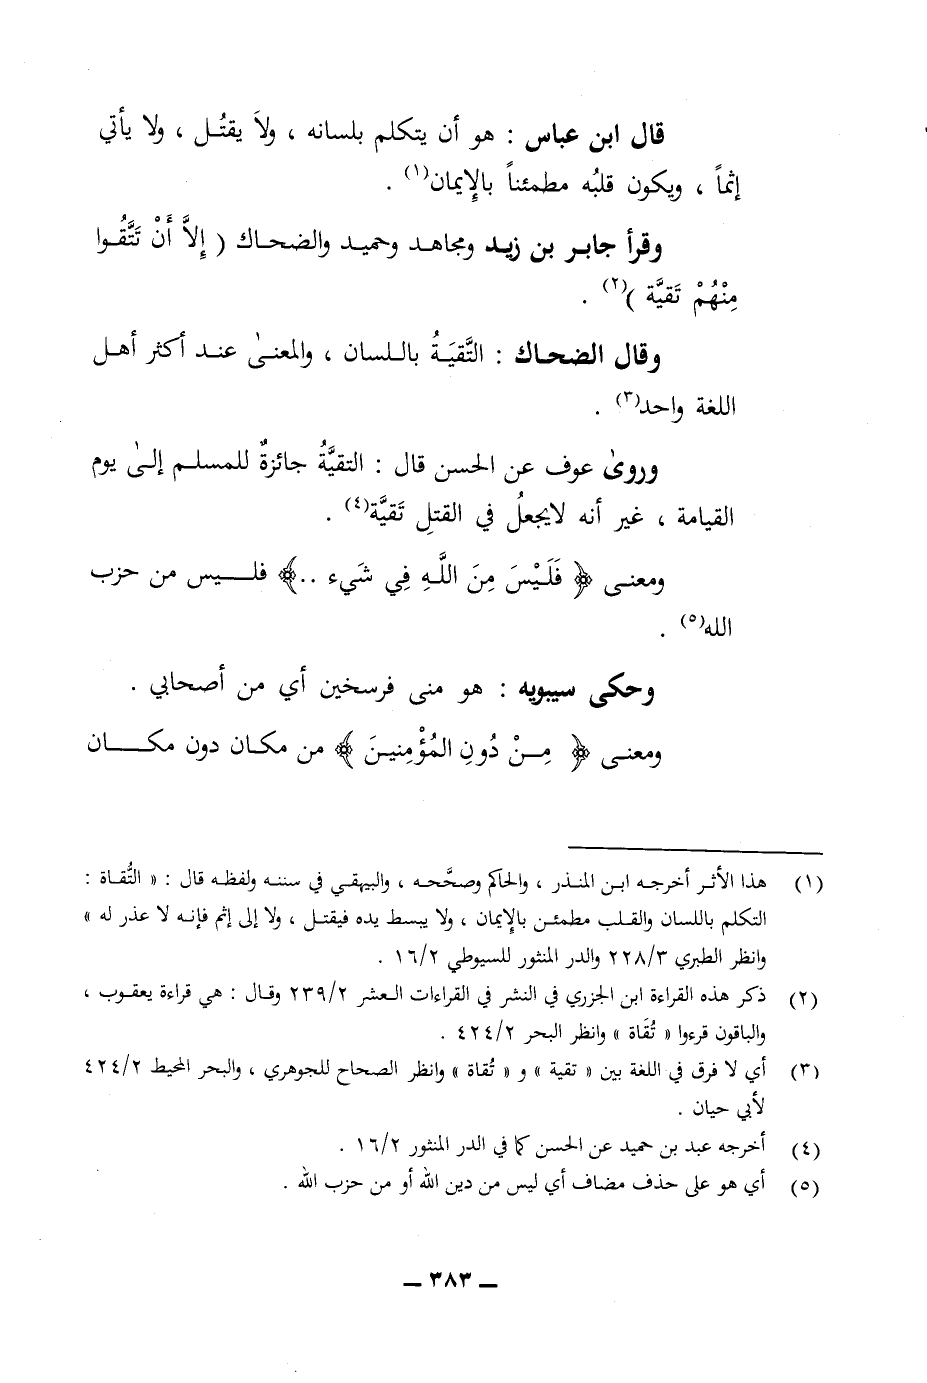 قال ابن عباس : هو أن يتكلم بلسانه ، ولاَ يقتُل ، ولا يأتي
إثماً ، ويكون قلبُه مطمئناً بالإيمان(١) .
وقرأ جابر بن زيد ومجاهد وحميد والضحاك ( إِلاَّ أَنْ تَتَّقُوا
مِنْهُمْ تَقيَّة )(٢) .
وقال الضحاك : التَّقيَةُ باللسان ، والمعنىٰ عند أكثر أهل
اللغة واحد(٣) .
وروىٰ عوف عن الحسن قال : التقيَّةُ جائزةٌ للمسلم إلىٰ يوم
القيامة ، غير أنه لايجعلُ في القتلِ تَقيَّة(٤) .
ومعنى ﴿ فَلَيْسَ مِنَ اللَّهِ فِي شَيء ..﴾ فليس من حزب
الله(٥) .
وحكى سيبويه : هو منى فرسخين أي من أصحابي .
ومعنى ﴿ مِنْ دُونِ المُؤْمِنينَ ﴾ من مكان دون مكان
(١) هذا الأثر أخرجه ابن المنذر ، والحاكم وصحَّحه ، والبيهقي في سننه ولفظه قال : « التُّقاة :
التكلم باللسان والقلب مطمئن بالإيمان ، ولا يبسط يده فيقتل ، ولا إلى إثم فإنه لا عذر له »
وانظر الطبري ٢٢٨/٣ والدر المنثور للسيوطي ١٦/٢ .
(٢) ذكر هذه القراءة ابن الجزري في النشر في القراءات العشر ٢٣٩/٢ وقال : هي قراءة يعقوب ،
والباقون قرءوا « تُقَاة » وانظر البحر ٤٢٤/٢ .
(٣) أي لا فرق في اللغة بين « تقية » و « تُقاة » وانظر الصحاح للجوهري ، والبحر المحيط ٤٢٤/٢
لأبي حيان .
(٤) أخرجه عبد بن حميد عن الحسن كما في الدر المنثور ١٦/٢ .
(٥) أي هو على حذف مضاف أي ليس من دين الله أو من حزب الله .
— ٣٨٣ —